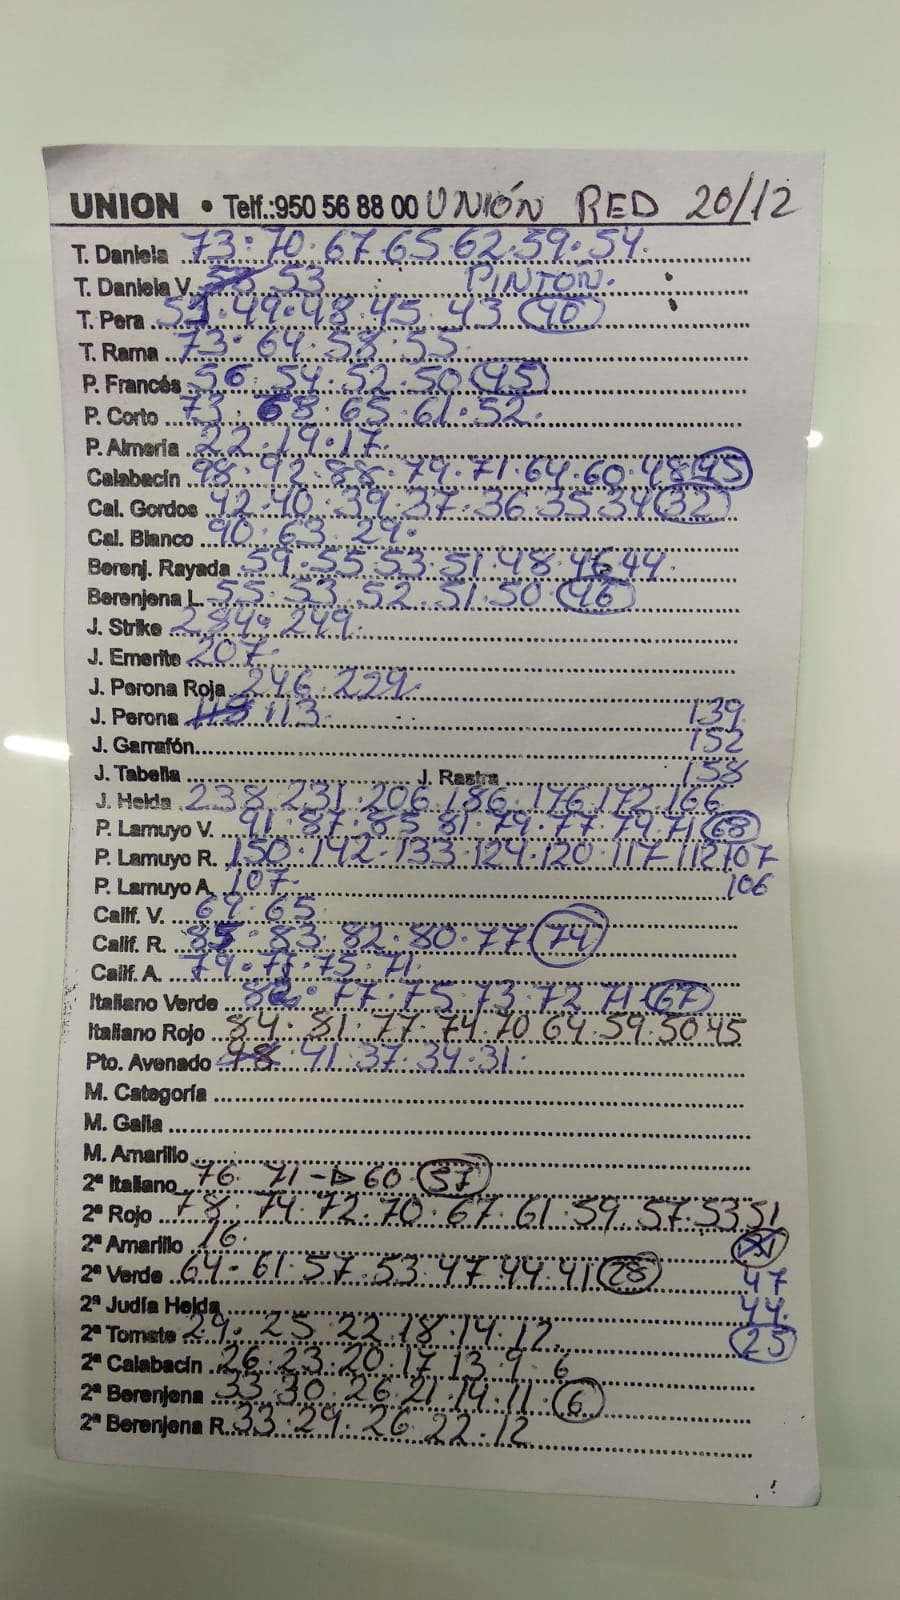 UNION • Telf.:950 56 88 00 UNIÓN RED 20/12
T. Daniela 73·70·67·65·62·59·54.
T. Daniela V. 53 PINTON.
T. Pera 51·49·48·45·43 (40)
T. Rama 73·64·58·55.
P. Francés 56·54·52·50 (45)
P. Corto 73·68·65·61·52.
P. Almería 22·19·17.
Calabacín 98·92·88·79·71·64·60·48 (45)
Cal. Gordos 42·40·39·37·36·35 34 (32)
Cal. Blanco 90·63·29.
Berenj. Rayada 59·55·53·51·48·46 44.
Berenjena L. 55·53·52·51·50 (46)
J. Strike 284·249.
J. Emerite 207.
J. Perona Roja 246·229.
J. Perona 113. 139
J. Garrafón 152
J. Tabella J. Rastra 158
J. Helda 238 231·206·186·176 172·166
P. Lamuyo V. 91·87·85 81·79·77·74·71 (68)
P. Lamuyo R. 150·142·133·124·120·117·112 107
P. Lamuyo A. 107. 106
Calif. V. 69·65.
Calif. R. 85·83·82·80·77 (74)
Calif. A. 79·77·75·71.
Italiano Verde 82·77·75·73·72 71 (67)
Italiano Rojo 84·81·77·74 70 64·59·50 45
Pto. Avenado 41·37·34·31.
M. Categoría
M. Galia
M. Amarillo
2ª Italiano 76. 71 → 60 (57)
2ª Rojo 78·74·72·70·67·61·59·57·53 51
2ª Amarillo 16.
2ª Verde 64·61·57·53·47 44·41 (28) 47
2ª Judía Helda 44.
2ª Tomate 29·25·22·18·14·12. (25)
2ª Calabacín 26·23·20·17·13·9·6
2ª Berenjena 33·30·26·21·14·11 (6)
2ª Berenjena R. 33·29·26·22·12